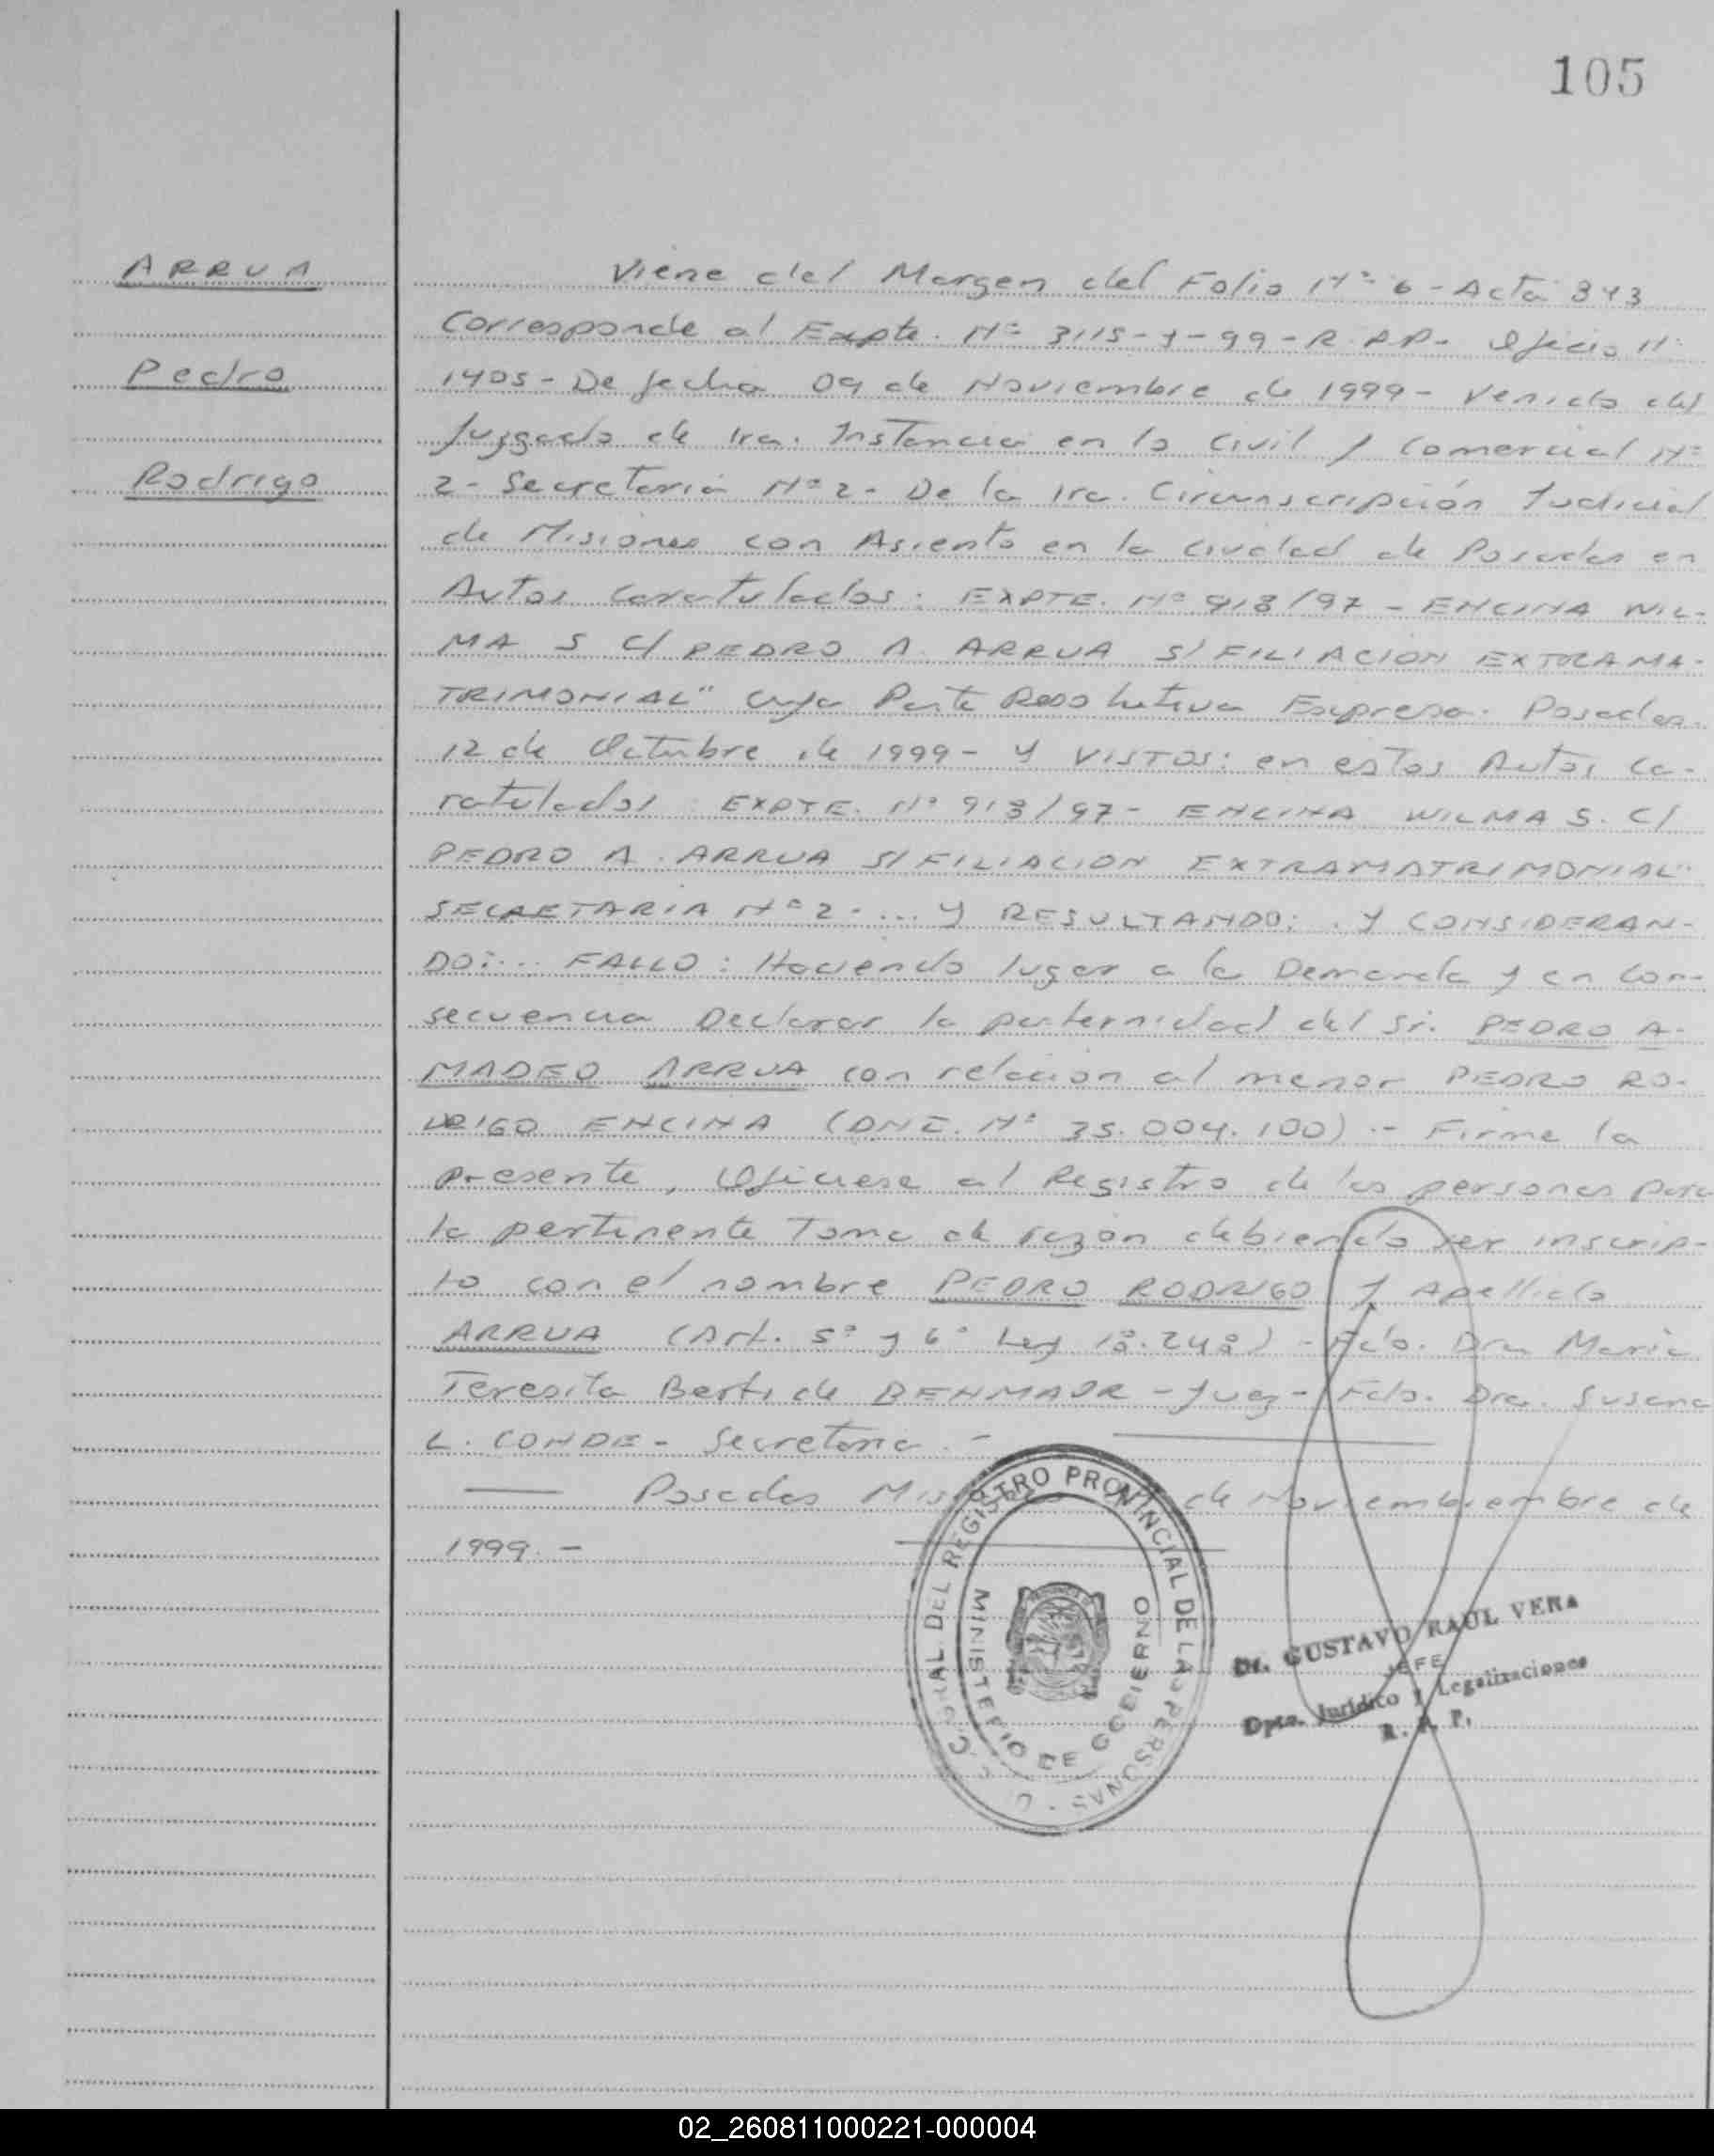 105
ARRUA
Pedro
Rodrigo
Viene del Margen del Folio Nº 6 - Acta 343
Corresponde al Expte. Nº 3115-J-99-R.P.P. Oficio Nº
1405 - De fecha 09 de Noviembre de 1999 - Venido del
Juzgado de 1ra. Instancia en lo Civil y Comercial Nº
2 - Secretaria Nº 2 - De la 1ra. Circunscripción Judicial
de Misiones con Asiento en la Ciudad de Posadas en
Autos Caratulados: EXPTE. Nº 913/97 - ENCINA WIL-
MA S C/ PEDRO A. ARRUA S/ FILIACION EXTRAMA-
TRIMONIAL" cuya Parte Resolutiva Expresa. Posadas.
12 de Octubre de 1999 - Y VISTOS: en estos Autos ca-
ratulados EXPTE. Nº 913/97 - ENCINA WILMA S. C/
PEDRO A. ARRUA S/ FILIACION EXTRAMATRIMONIAL"
SECRETARIA Nº 2 - ... Y RESULTANDO: . Y CONSIDERAN-
DO: ... FALLO: Haciendo lugar a la Demanda y en con-
secuencia Declarar la paternidad del Sr. PEDRO A-
MADEO ARRUA con relacion al menor PEDRO RO-
DRIGO ENCINA (DNI. Nº 35.004.100) .- Firme la
presente, Ofíciese al Registro de las personas para
la pertinente Toma de razón debiendo ser inscrip-
to con el nombre PEDRO RODRIGO y Apellido
ARRUA (Art. 5º y 6º Ley 18.248) - Fdo. Dra Maria
Teresita Berti de BENMAOR - Juez - Fdo. Dra. Susana
L. CONDE - Secretaria . -
Posadas Mis de Noviembiembre de
1999. -
REGISTRO PROVINCIAL DE LAS PERSONAS
MINISTERIO DE GOBIERNO
Dr. GUSTAVO RAUL VERA
JEFE
Dpto. Jurídico y Legalizaciones
R. P. P.
02_260811000221-000004